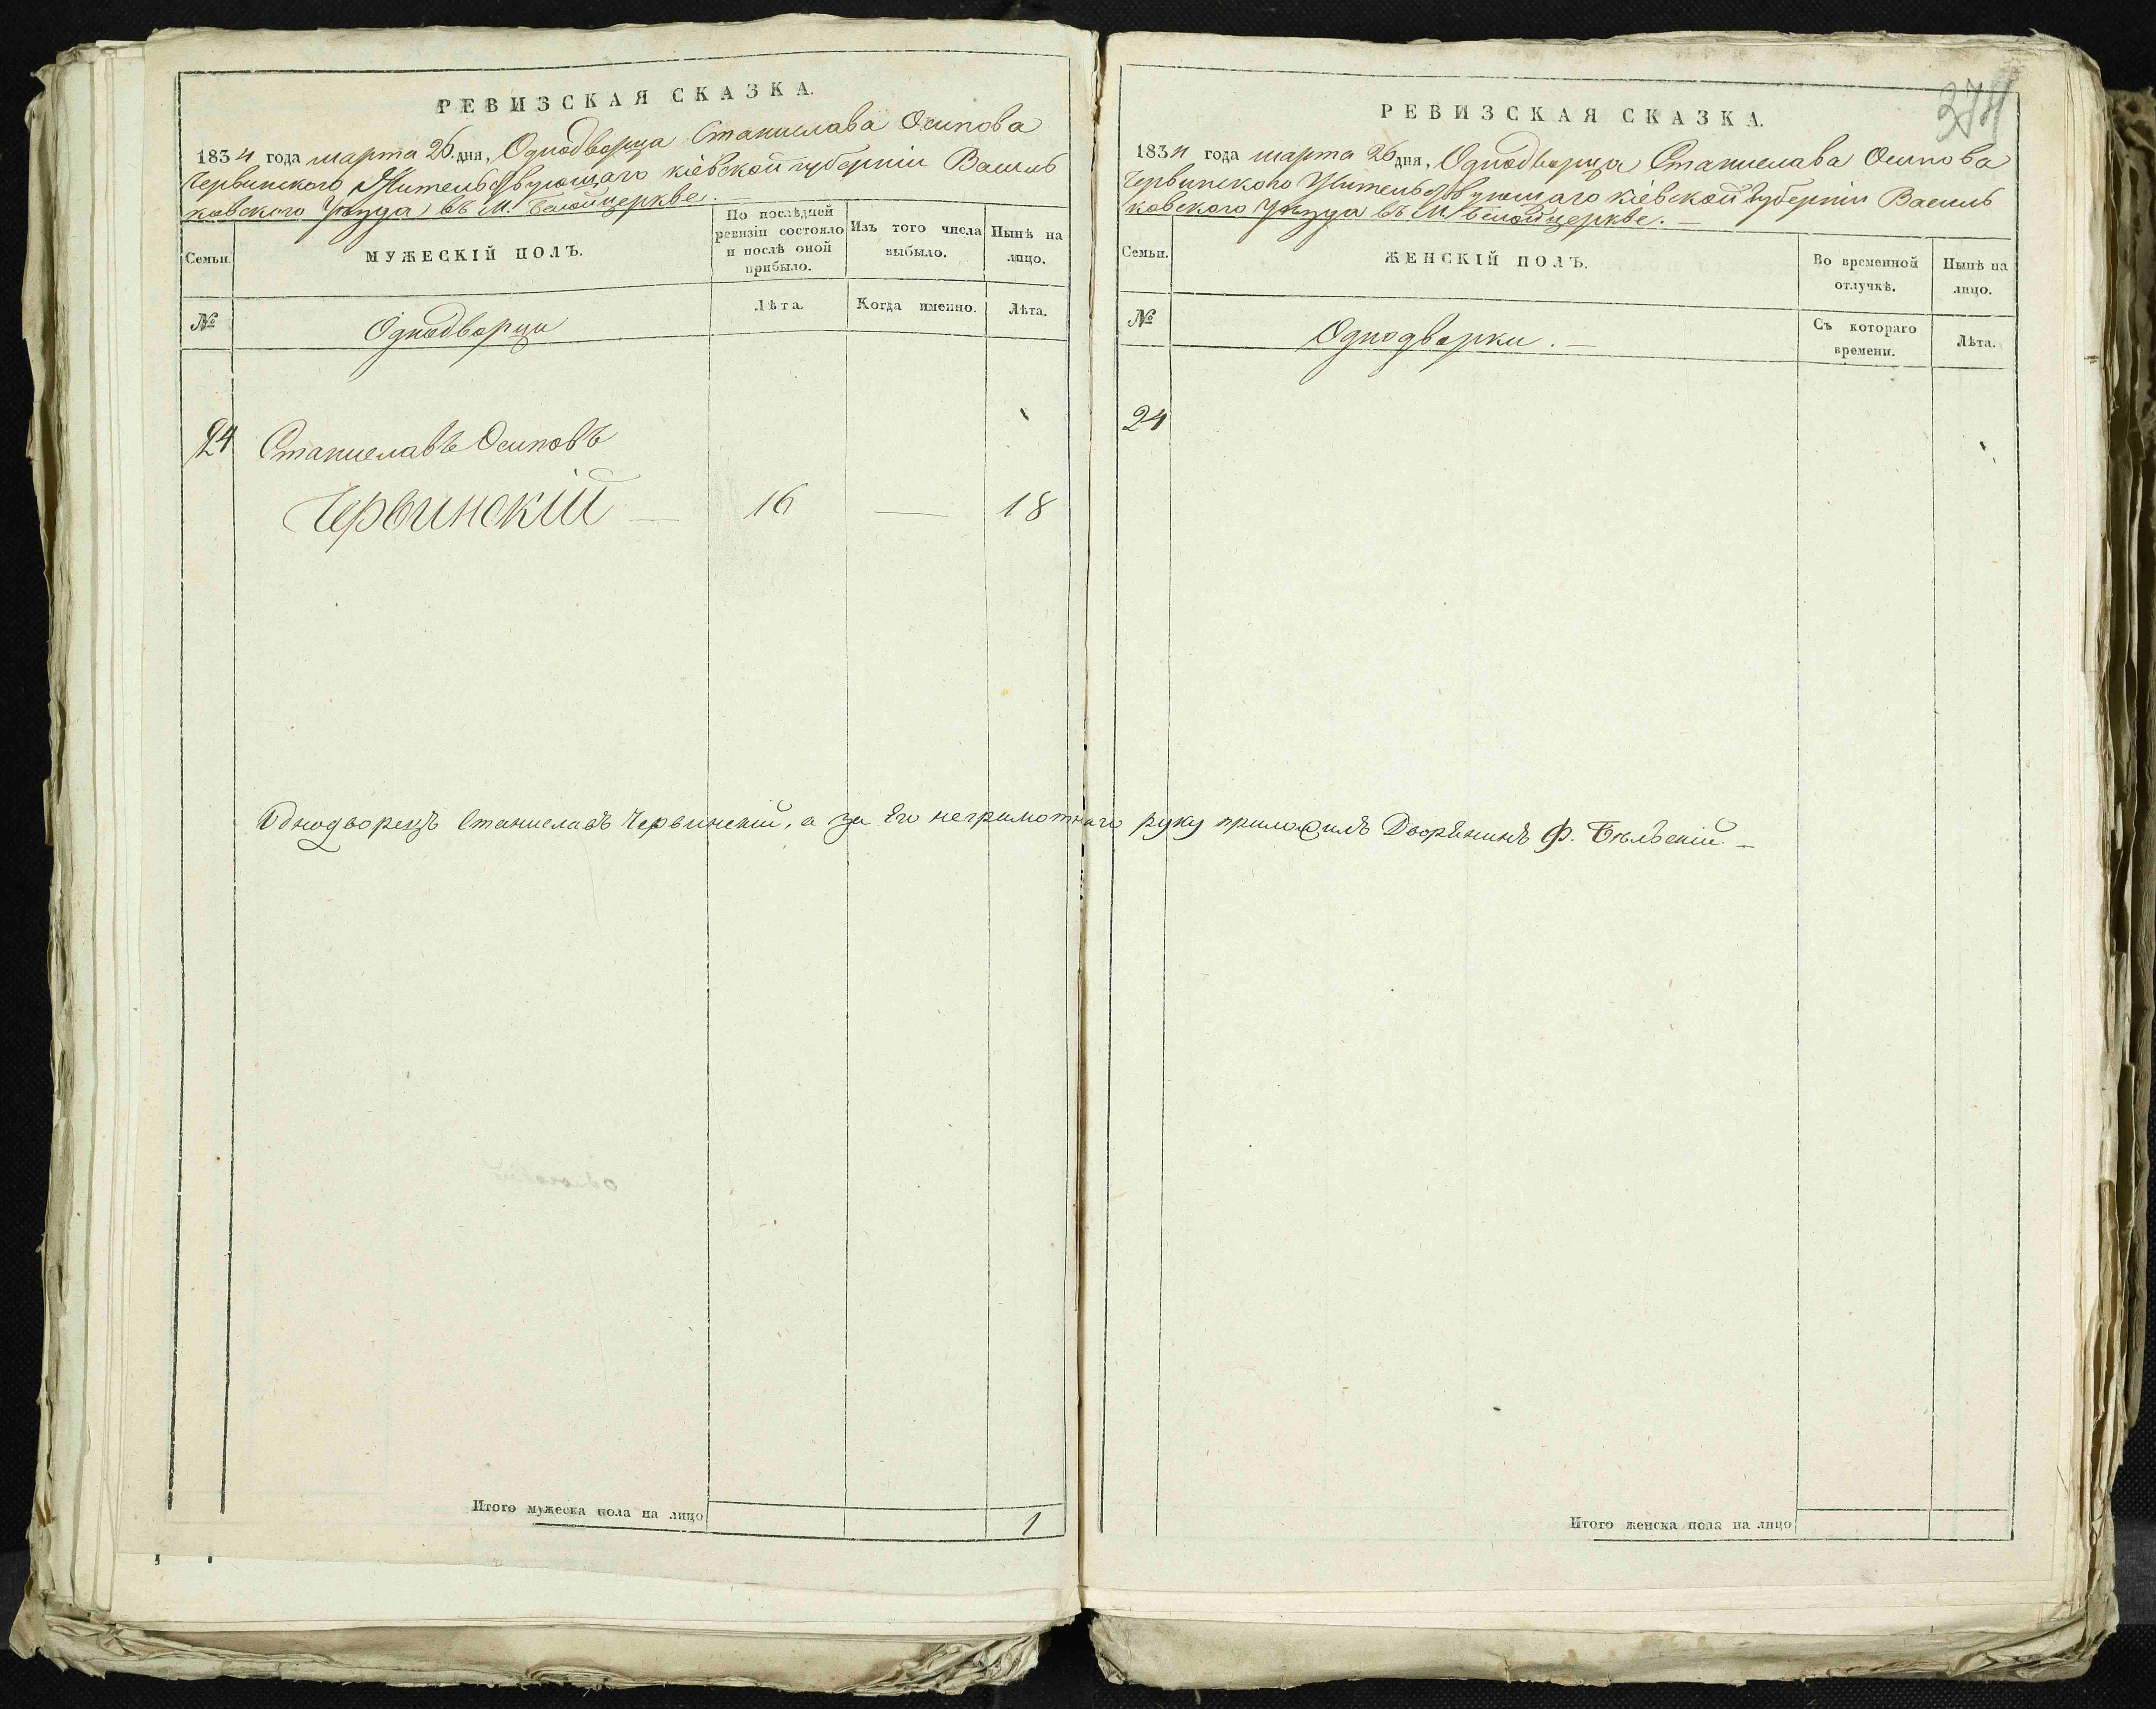 РЕВИЗСКАЯ СКАЗКА.
1834 года марта 26 дня, Однодворца Станислава Осипова
Червинского Жительствующаго кіевской губерніи Василь
ковского Уезда въ М. Белойцеркве.
Семьи.
МУЖЕСКІЙ ПОЛЪ.
По послѣдней ревизіи состояло и послѣ оной прибыло.
Изъ того числа выбыло.
Нынѣ на лицо.
№
Однодворци
Лѣта.
Когда именно.
Лѣта.
24 Станиславъ Осиповъ
Червинскій — 16 — 18
Итого мужеска пола на лицо 1
374
РЕВИЗСКАЯ СКАЗКА.
1834 года марта 26 дня, Однодворца Станислава Осипова
Червинского Жительствующаго кіевской губерніи Василь
ковского Уезда въ М. Белойцеркве. —
Семьи.
ЖЕНСКІЙ ПОЛЪ.
Во временной отлучкѣ.
Нынѣ на лицо.
№
Однодворки. —
Съ котораго времени.
Лѣта.
24
Однодворецъ Станиславъ Червинскій, а за Его неграмотнаго руку приложилъ Дворянинъ Ф. Бѣльскій. —
Итого женска пола на лицо